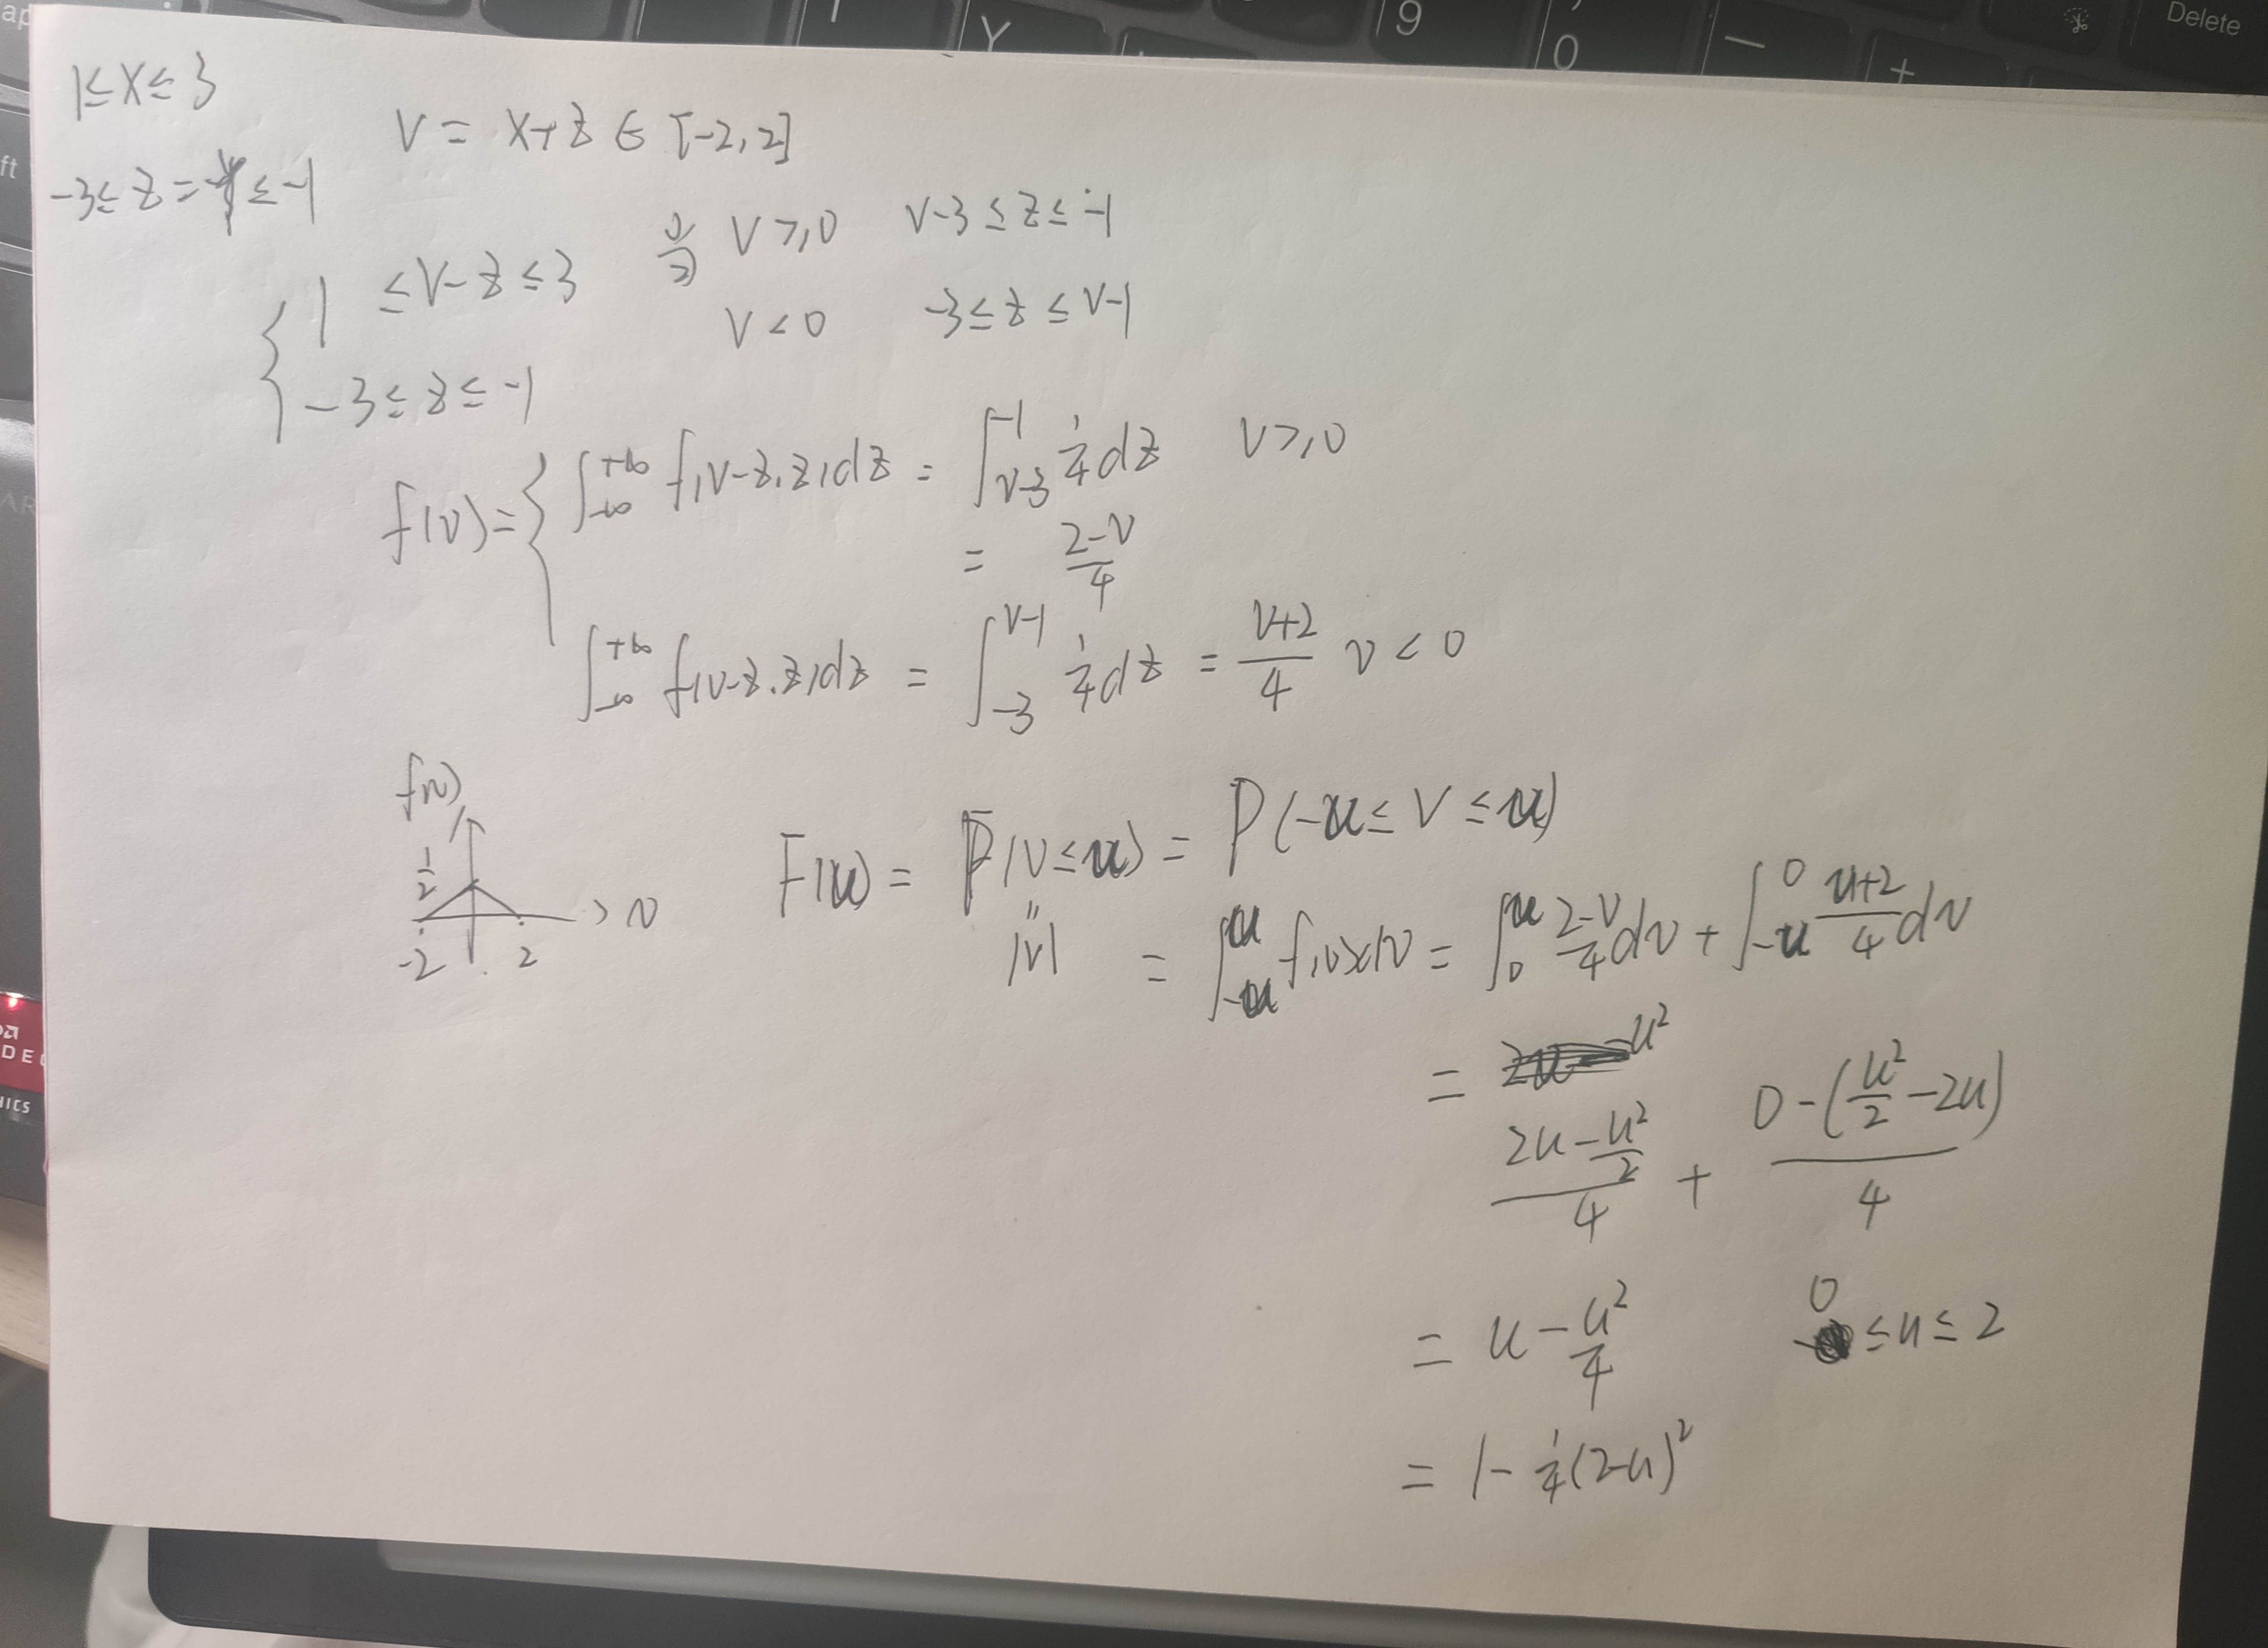 Y 9 0 — + Delete
1≤X≤3
V = X+Z ∈ [-2,2]
-3≤Z=-Y≤-1
{ 1 ≤V-Z≤3
-3≤Z≤-1
V≥0 V-3≤Z≤-1
V<0 -3≤Z≤V-1
f(v)= { ∫_{-∞}^{+∞} f(v-z,z)dz = ∫_{v-3}^{-1} 1/4 dz V≥0
= (2-v)/4
∫_{-∞}^{+∞} f(v-z,z)dz = ∫_{-3}^{v-1} 1/4 dz = (v+2)/4 v<0
f(v)
1/2
-2 2 v
F(u) = P(V≤u) = P(-u≤V≤u)
|V|
= ∫_{-u}^{u} f(v)dv = ∫_0^u (2-v)/4 dv + ∫_{-u}^0 (u+2)/4 dv
= u²
(2u-u²/2)/4 + (0-(u²/2-2u))/4
= u - u²/4 0≤u≤2
= 1-1/4(2-u)²